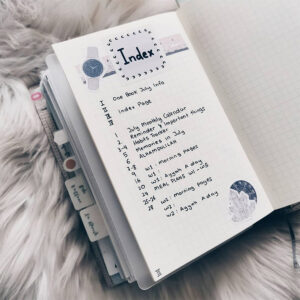 Index
I One Book July Info
II
III Index Page
1 July Monthly Calendar
2 Reminder & Important things
3-4 Habits Tracker
5 Memories in July
ALHAMDULILLAH
9 W1 : Morning Pages
16 W1 : Ayyah A day
MEAL PLANS W1-W5
W2 : Morning pages
W2 : Ayyah A day